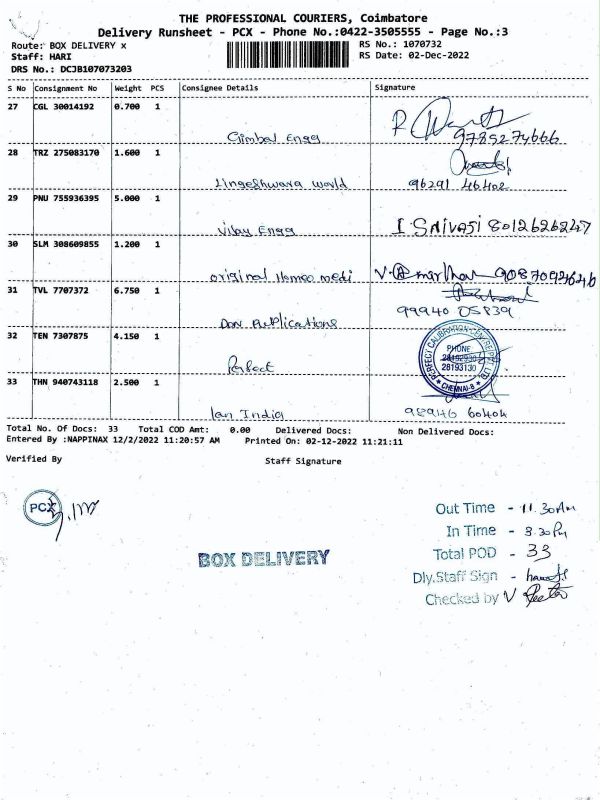 THE PROFESSIONAL COURIERS, Coimbatore
Delivery Runsheet - PCX - Phone No.:0422-3505555 - Page No.:3
Route: BOX DELIVERY x RS No.: 1070732
Staff: HARI RS Date: 02-Dec-2022
DRS No.: DCJB107073203
S No Consignment No Weight PCS Consignee Details Signature
27 CGL 30014192 0.700 1
Gimbal Engg 9785274666
28 TRZ 275083170 1.600 1
Lingeshwara world 96291 46402
29 PNU 755936395 5.000 1
Vijay Engg 8012626247
30 SLM 308609855 1.200 1
original Homeo medi 9087092646
31 TVL 7707372 6.750 1
99940 05839
Don Publications
32 TEN 7307875 4.150 1
Perfect
PERFECT CALIBRATION CENTRE PVT. LTD
PHONE
28193130
CHENNAI-8
33 THN 940743118 2.500 1
Ian India 98946 60404
Total No. Of Docs: 33 Total COD Amt: 0.00 Delivered Docs: Non Delivered Docs:
Entered By :NAPPINAX 12/2/2022 11:20:57 AM Printed On: 02-12-2022 11:21:11
Verified By Staff Signature
PCX
Out Time - 11.30 Am
In Time - 3.30 Pm
Total POD - 33
BOX DELIVERY
Dly.Staff Sign -
Checked by